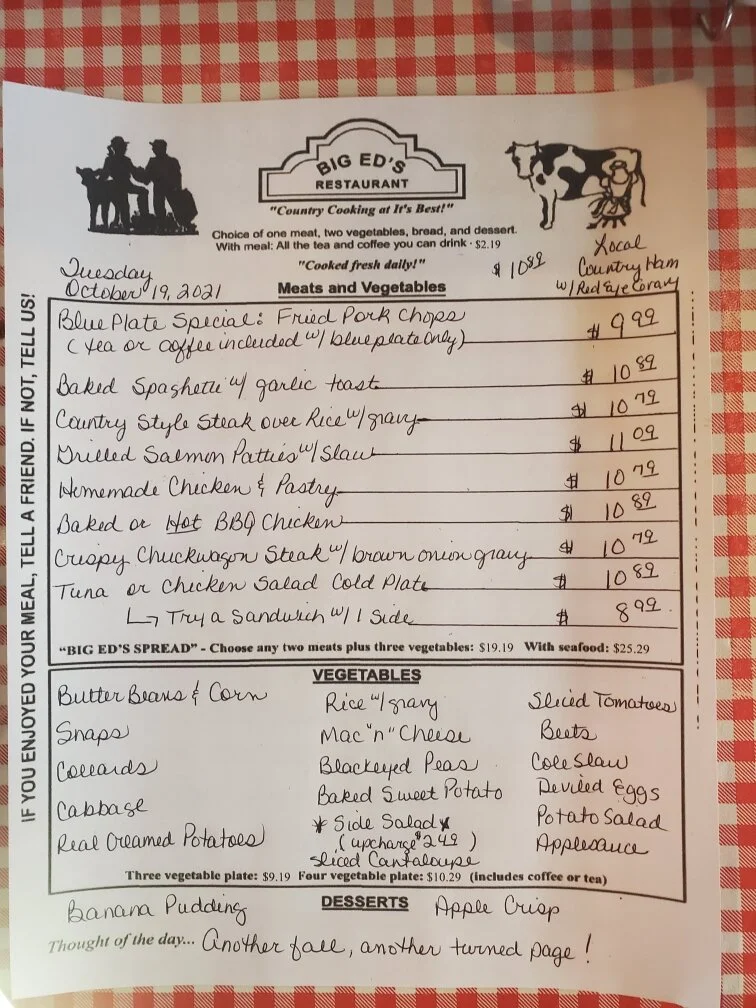 BIG ED'S
RESTAURANT
"Country Cooking at It's Best!"
Choice of one meat, two vegetables, bread, and dessert.
With meal: All the tea and coffee you can drink · $2.19
"Cooked fresh daily!"
Tuesday
October 19, 2021
$ 10 89 Local
Country Ham
w/ Red Eye Gravy
Meats and Vegetables
Blue Plate Special: Fried Pork Chops $ 9 99
(tea or coffee included w/ blue plate only)
Baked Spaghetti w/ garlic toast $ 10 89
Country Style Steak over Rice w/ gravy $ 10 79
Grilled Salmon Patties w/ Slaw $ 11 09
Homemade Chicken & Pastry $ 10 79
Baked or Hot BBQ Chicken $ 10 89
Crispy Chuckwagon Steak w/ brown onion gravy $ 10 79
Tuna or Chicken Salad Cold Plate $ 10 89
↳ Try a Sandwich w/ 1 Side $ 8 99
"BIG ED'S SPREAD" - Choose any two meats plus three vegetables: $19.19 With seafood: $25.29
VEGETABLES
Butter Beans & Corn
Snaps
Collards
Cabbage
Real Creamed Potatoes
Rice w/ gravy
Mac "n" Cheese
Blackeyed Peas
Baked Sweet Potato
* Side Salad *
(upcharge $2 49)
Sliced Cantaloupe
Sliced Tomatoes
Beets
Cole Slaw
Deviled Eggs
Potato Salad
Applesauce
Three vegetable plate: $9.19 Four vegetable plate: $10.29 (includes coffee or tea)
DESSERTS
Banana Pudding
Apple Crisp
Thought of the day... Another fall, another turned page!
IF YOU ENJOYED YOUR MEAL, TELL A FRIEND. IF NOT, TELL US!